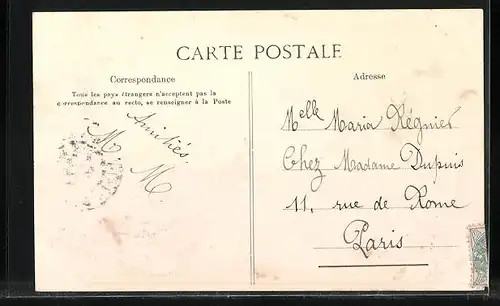 CARTE POSTALE
Correspondance
Tous les pays étrangers n'acceptent pas la
correspondance au recto, se renseigner à la Poste
Amitiés.
M. M.
Adresse
Melle Maria Régnier
Chez Madame Dupuis
11, rue de Rome
Paris